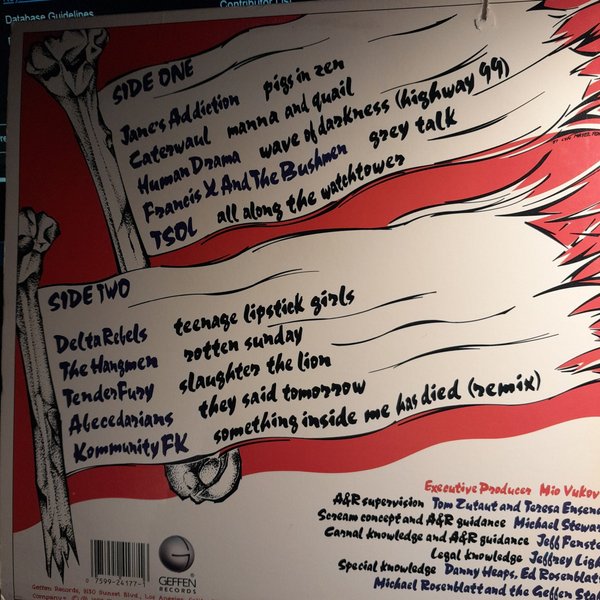 Database Guidelines
Contributor List
SIDE ONE
Jane's Addiction pigs in zen
Caterwaul manna and quail
Human Drama wave of darkness (highway 99)
Francis X And The Bushmen grey talk
TSOL all along the watchtower
SIDE TWO
Delta Rebels teenage lipstick girls
The Hangmen rotten sunday
Tender Fury slaughter the lion
Abecedarians they said tomorrow
Kommunity FK something inside me has died (remix)
Executive Producer Mio Vukov
A&R supervision Tom Zutaut and Teresa Ensena
Scream concept and A&R guidance Michael Stewar
Carnal knowledge and A&R guidance Jeff Fenste
Legal knowledge Jeffrey Ligh
Special knowledge Danny Heaps, Ed Rosenblatt
Michael Rosenblatt and the Geffen Sta
0 7599-24177-1
GEFFEN
RECORDS
Geffen Records, 9130 Sunset Blvd., Los Angeles